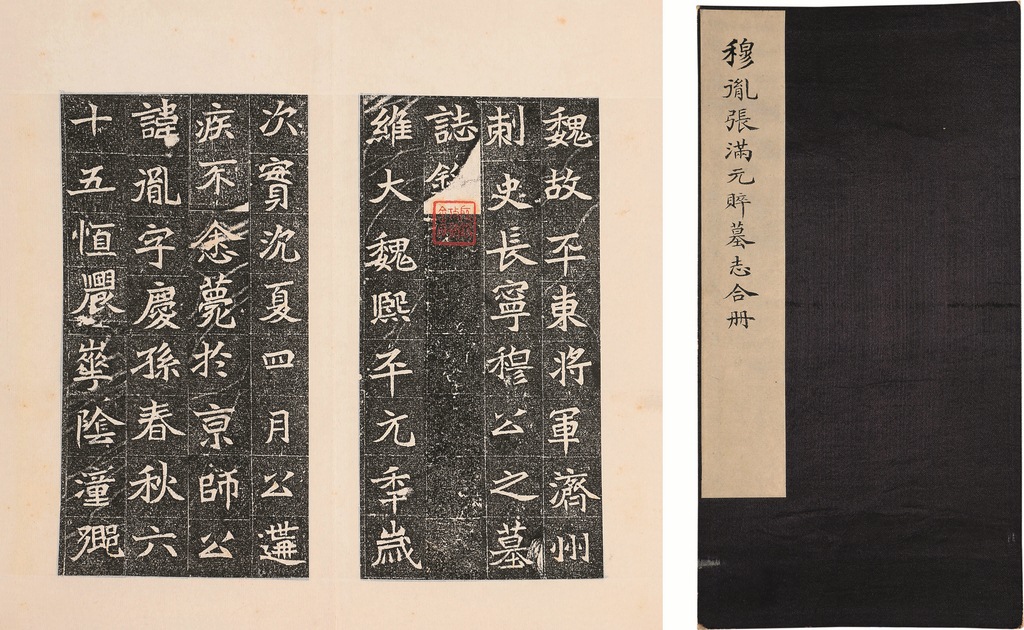 穆胤張滿元賥墓志合册
魏故平東將軍濟州
刺史長寧穆公之墓
誌銘
維大魏熙平元年歲
次實沈夏四月公遘
疾不悆薨於京師公
諱胤字慶孫春秋六
十五恒農華陰潼鄉